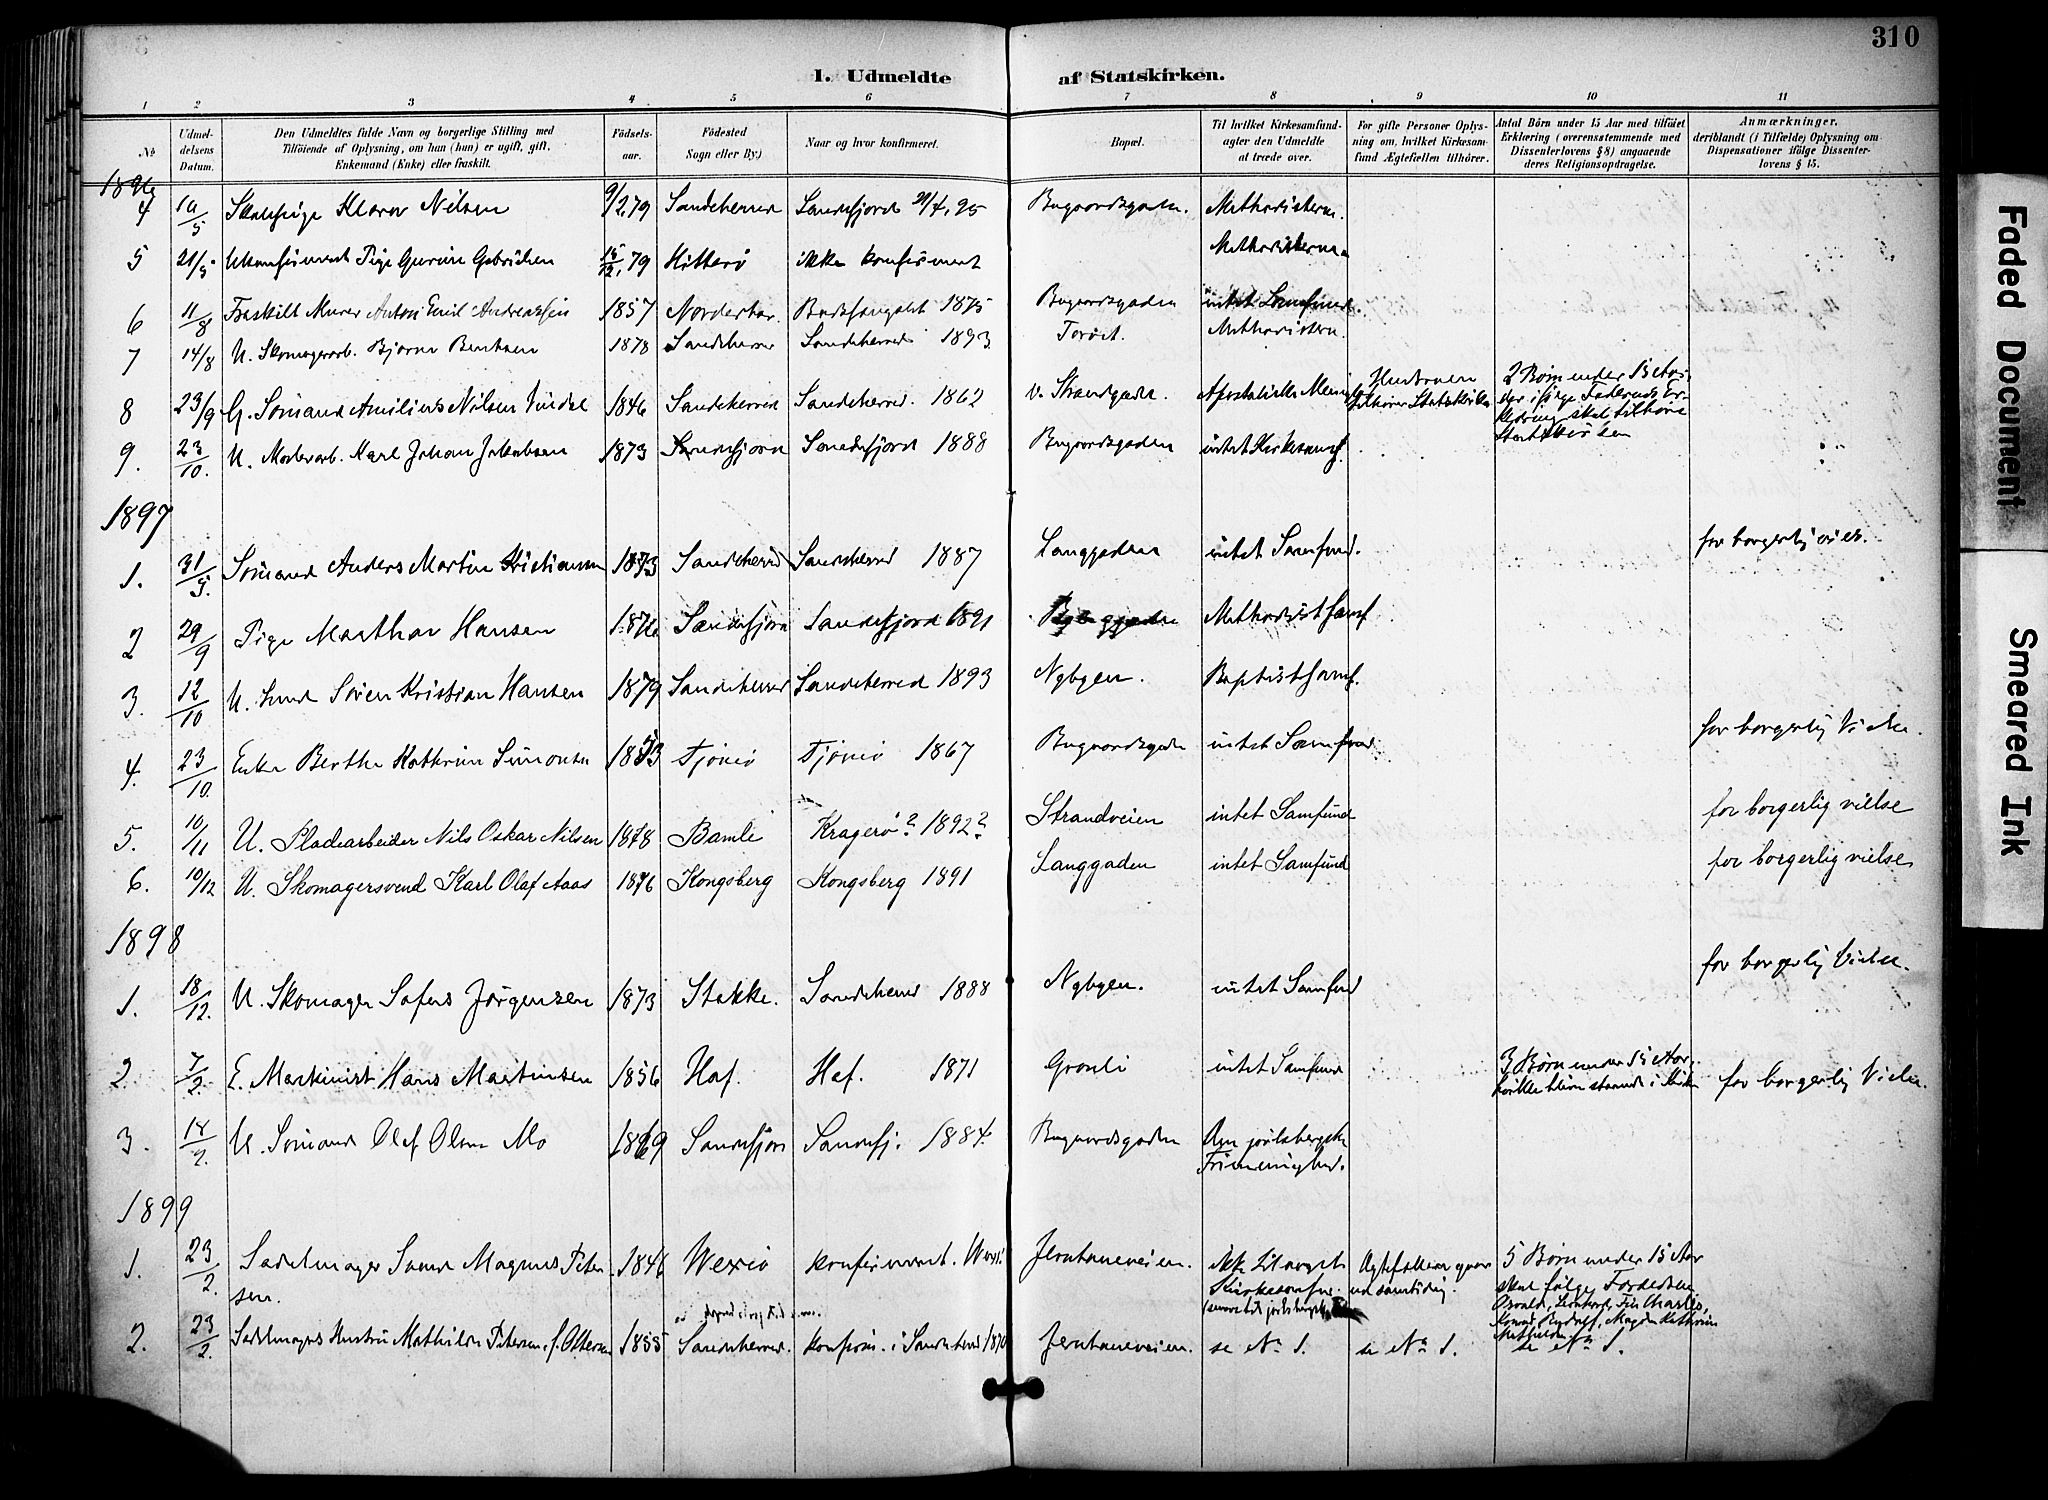 310
1. Udmeldte af Statskirken.
1 2 3 4 5 6 7 8 9 10 11
No
Udmeldelsens Datum.
Den Udmeldtes fulde Navn og borgerlige Stilling med
Tilföiende af Oplysning, om han (hun) er ugift, gift,
Enkemand (Enke) eller fraskilt.
Födselsaar.
Födested
Sogn eller By.)
Naar og hvor konfirmeret.
Bopæl.
Til hvilket Kirkesamfund
agter den Udmeldte
at træde over.
For gifte Personer Oplysning om, hvilket Kirkesamfund Ægtefællen tilhörer.
Antal Börn under 15 Aar med tilföiet
Erklæring (overensstemmende med
Dissenterlovens §8) angaaende
deres Religionsopdragelse.
Anmærkninger,
deriblandt (i Tilfælde) Oplysning om
Dispensationer ifölge Dissenterlovens § 15.
1896
4 19/5 Klara Nilsen 9/2 79 Sandeherred Sandefjord 95 Bugaardsgaden. Methodisterne.
5 21/5 Ukonfirmert Pige Gurine 15/12, 79 Hitterö ikke konfirmert Methodisterne
6 11/8 Fraskilt Murer Anton Emil Andreassen 1857 1875 Bugaardsgaden intet Samfund.
7 14/8 U. Skomagerarb. Bjarne Bentsen 1878 Sandeherred Sandeherred 1893 Torvet. Methodistern
8 23/9 G. Sömand Amilius Nilsen 1846 Sandeherred Sandeherred. 1862 v. Strandgaden. Apostoliske Menigh. Hustruen tilhörer Statskirken 2 Börn under 15 Aar, der ifölge Faderens Erklæring skal tilhöre Statskirken
9. 23/10. U. Malerarb. Karl Johan Jakobsen 1873 Sandefjord Sandefjord 1888 Bugaardsgaden intet Kirkesamf.
1897
1. 31/5. Sömand Anders Martin Kristiansen 1873 Sandeherred Sandeherred 1887 Langgaden intet Samfund. for borgerlig vies.
2 29/9 Pige Marthar Hansen 1876 Sandefjord Sandefjord 1891 Methodistsamf
3. 12/10 U. Smed Sören Kristian Hansen 1879 Sandeherred Sandeherred 1893 Nybyen. Baptistsamf.
4. 23/10. Enke Berthe Kathrine Simonsen Tjömö Tjömö 1867 Bugaardsgade intet Samfund for borgerlig Vielse.
5. 10/11 U. Pladearbeider Nils Oskar Nilsen 1878 Bamle Kragerö? 1892? Strandveien intet Samfund for borgerlig vielse
6. 10/12 U. Skomagersvend Karl Olaf Aaas 1876 Kongsberg Kongsberg 1891 Langgaden intet Samfund for borgerlig vielse
1898
1. 18/12. U. Skomager Sofus Jörgensen 1873 Stokke. Sandeherred 1888 Nybyen. intet Samfund for borgerlig Vielse.
2. 7/2. E. Maskinist Hans Martinsen 1856 Hof. Hof. 1871 Granli intet Samfund 3 Börn under 15 Aar, hvilke blive staaende i Kirken for borgerlig Vielse.
3. 18/2. U. Sömand Olaf Olsen Mo 1869 Sandefjord Sandefj. 1884. Bugaardsgaden Den jarlsbergske Frimenighed.
1899
1. 23/2 Sadelmager Magnus Petersen. 1846 Wexiö konfirmeret. Jernbaneveien. ikke til noget Kirkesamfund Ægtefællen gaar ud samtidig. 5 Börn under 15 Aar skal fölge Forældrene Osvald, Leonhard, Charles, Konrad, Magda Kathrine Mathilde
2. 23/2. Sadelmagers Hustru Mathilde Petersen, f. Olsen 1855 Sandeherred. konfirm. i Sandeherred 1870 Jernbaneveien. se No 1. se No 1. se No 1.
Faded Document
Smeared Ink